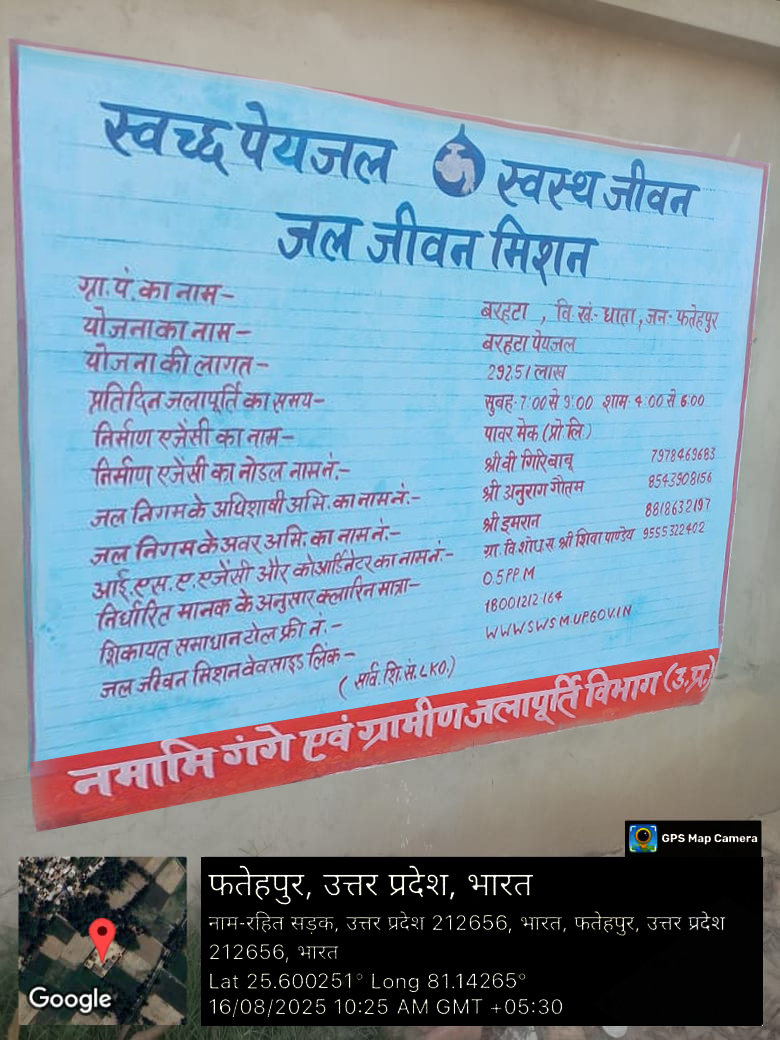 स्वच्छ पेयजल स्वस्थ जीवन
जल जीवन मिशन
ग्रा.पं. का नाम- बरहटा , वि.खं.- धाता, जन- फतेहपुर
योजना का नाम- बरहटा पेयजल
योजना की लागत- 292.51 लाख
प्रतिदिन जलापूर्ति का समय- सुबह- 7:00 से 9:00 शाम- 4:00 से 6:00
निर्माण एजेंसी का नाम- पावर मेक (प्रो लि)
निर्माण एजेंसी का नोडल नाम नं.- श्री वी गिरि बाबू 7978469683
जल निगम के अधिशाषी अभि. का नाम नं.- श्री अनुराग गौतम 8543908156
जल निगम के अवर अभि. का नाम नं.- श्री इमरान 8818632197
आई.एस.ए. एजेंसी और कोआर्डिनेटर का नाम नं.- ग्रा. वि. शोध स श्री शिवा पाण्डेय 9555322402
निर्धारित मानक के अनुसार क्लारिन मात्रा- 0.5PPM
शिकायत समाधान टोल फ्री नं.- 18001212164
जल जीवन मिशन वेवसाइड लिंक- WWW.SWSM.UP.GOV.IN
(सार्व. शि. सं. LKO.)
नमामि गंगे एवं ग्रामीण जलापूर्ति विभाग (उ.प्र.)
GPS Map Camera
फतेहपुर, उत्तर प्रदेश, भारत
नाम-रहित सड़क, उत्तर प्रदेश 212656, भारत, फतेहपुर, उत्तर प्रदेश
212656, भारत
Lat 25.600251° Long 81.14265°
16/08/2025 10:25 AM GMT +05:30
Google